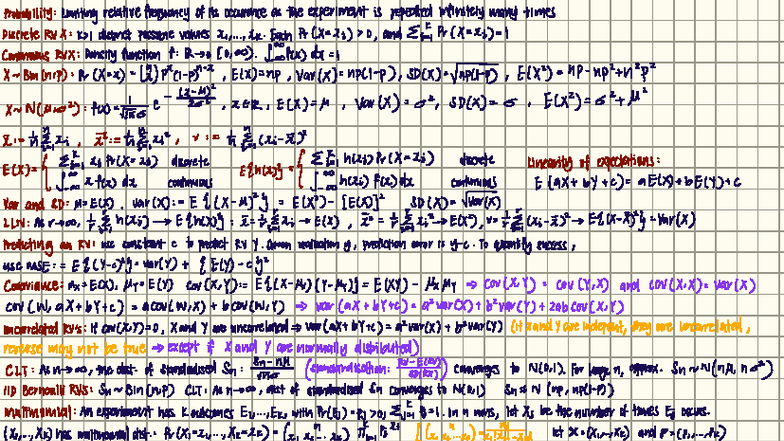 Probability: Limiting relative frequency of its occurance as the experiment is repeated infinitely many times
Discrete RV X: k>1 distinct possible values x₁,...,xₖ. Each Pr(X=xᵢ) > 0, and Σᵢ₌₁ᵏ Pr(X=xᵢ)=1
Continuous RV X: Density function f: R→[0,∞). ∫₋∞^∞ f(x) dx = 1
X~Bin(n,p): Pr(X=x) = (n x) pˣ(1-p)ⁿ⁻ˣ, E(X)=np, Var(X)=np(1-p), SD(X)=√np(1-p), E(X²)= np-np²+n²p²
X~N(μ,σ²): f(x) = 1/√2πσ e^-(x-μ)²/2σ², x∈R, E(X)=μ, Var(X)=σ², SD(X)=σ, E(X²)=σ²+μ²
x̄ := 1/n Σᵢ₌₁ⁿ xᵢ, x̄² := 1/n Σᵢ₌₁ⁿ xᵢ², v := 1/n Σᵢ₌₁ⁿ (xᵢ-x̄)²
E(X)= { Σᵢ₌₁ᵏ xᵢ Pr(X=xᵢ) discrete E{h(X)} = { Σᵢ₌₁ᵏ h(xᵢ) Pr(X=xᵢ) discrete Linearity of expectations:
∫₋∞^∞ x f(x) dx continuous ∫₋∞^∞ h(x) f(x) dx continuous E{aX+bY+c} = aE(X)+bE(Y)+c
Var and SD: μ=E(X), var(X) := E{(X-μ)²} = E(X²) - [E(X)]² SD(X) = √var(X)
LLN: As r→∞, 1/r Σ h(xᵢ) → E{h(X)}: x̄ = 1/r Σ xᵢ → E(X), x̄² = 1/r Σ xᵢ² → E(X²), v = 1/r Σ (xᵢ-x̄)² → E{(X-X̄)²} = Var(X)
Predicting an RV: use constant c to predict RV Y. Given realisation y, prediction error is y-c. To quantify success,
use MSE := E{(Y-c)²} = var(Y) + {E(Y)-c}²
Covariance: μₓ=E(X), μᵧ=E(Y) cov(X,Y) := E{(X-μₓ)(Y-μᵧ)} = E(XY) - μₓμᵧ ⇒ cov(X,Y) = cov(Y,X) and cov(X,X) = var(X)
cov(W, aX+bY+c) = a cov(W,X) + b cov(W,Y) ⇒ var(aX+bY+c) = a²var(X)+b²var(Y)+2ab cov(X,Y)
Uncorrelated RVs: If cov(X,Y)=0, X and Y are uncorrelated ⇒ var(aX+bY+c) = a²var(X)+b²var(Y) (If X and Y are indepent, they are uncorrelated,
reverse may not be true → except if X and Y are normally distributed)
CLT: As n→∞, the dist. of standardised Sn: Sn-nμ/√nσ (standardisation: RV-E(RV)/SD(RV)) converges to N(0,1). For large n, approx. Sn~N(nμ, nσ²)
IID Bernoulli RVs: Sn~Bin(n,p) CLT: As n→∞, dist of standardised Sn converges to N(0,1) Sn≈N(np, np(1-p))
Multinomial: An experiment has k outcomes E₁,...,Eₖ, with Pr(Eᵢ)=pᵢ>0, Σᵢ₌₁ᵏ pᵢ=1. In n runs, let Xᵢ be the number of times Eᵢ occurs.
(X₁,...,Xₖ) has multinomial dist.: Pr(X₁=x₁,...,Xₖ=xₖ) = let X=(X₁,...,Xₖ) and p=(p₁,...,pₖ)